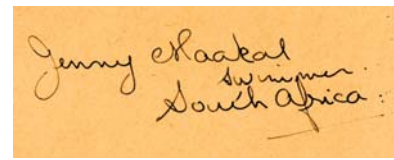 Jenny Maakal
swimmer.
South Africa.